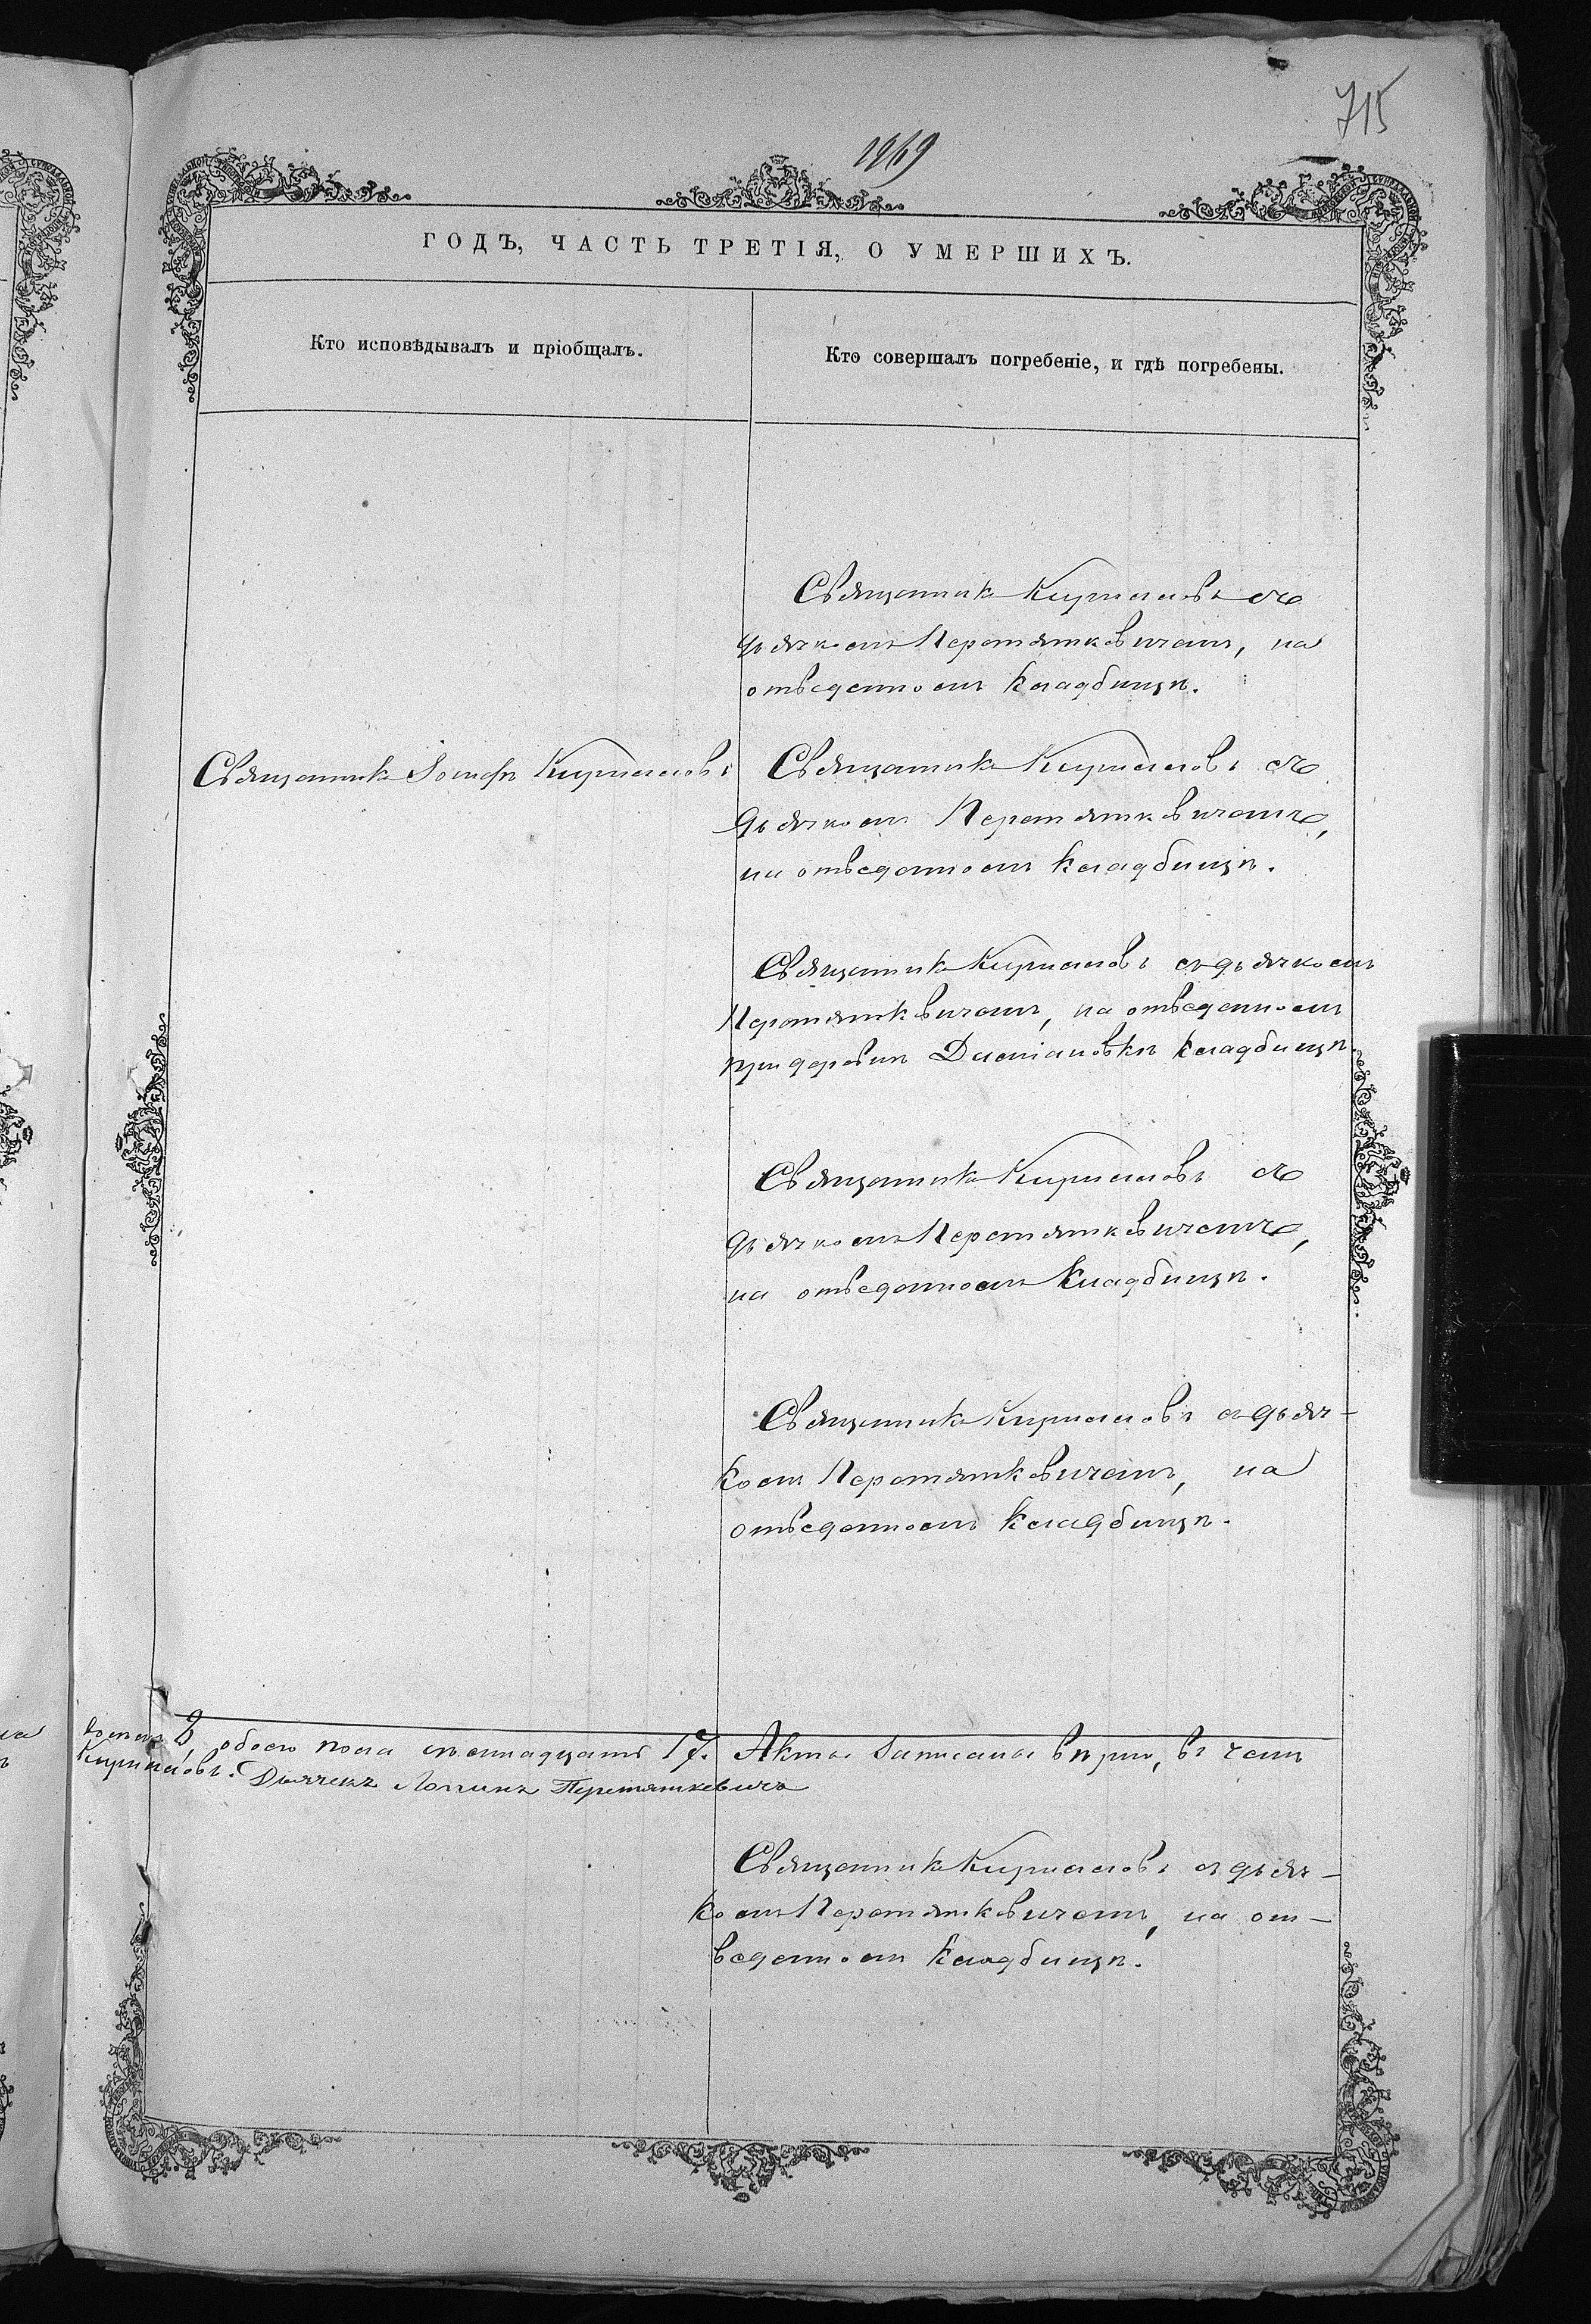 715
1969
ГОДЪ, ЧАСТЬ ТРЕТІЯ, О УМЕРШИХЪ.
Кто исповѣдывалъ и пріобщалъ.
Кто совершалъ погребеніе, и гдѣ погребены.
Священникъ Кириаловъ съ
дьячкомъ Перетятковичемъ, на
отведенномъ кладбищѣ.
Священникъ Іосифъ Кириаловъ
Священникъ Кириаловъ съ
дьячкомъ Перетятковичемъ,
на отведенномъ кладбищѣ.
Священникъ Кириаловъ съ дьячкомъ
Перетятковичемъ, на отведенномъ
при деревнѣ кладбищѣ.
Священникъ Кириаловъ съ
дьячкомъ Перетятковичемъ,
на отведенномъ кладбищѣ.
Священникъ Кириаловъ съ дьяч-
комъ Перетятковичемъ, на
отведенномъ кладбищѣ.
обоего пола семнадцать 17. Акты записаны вѣрно, въ чемъ
Кириаловъ. Дьячекъ Логинъ Перетяткевичъ
Священникъ Кириаловъ съ дьяч-
комъ Перетятковичемъ, на от-
веденномъ кладбищѣ.